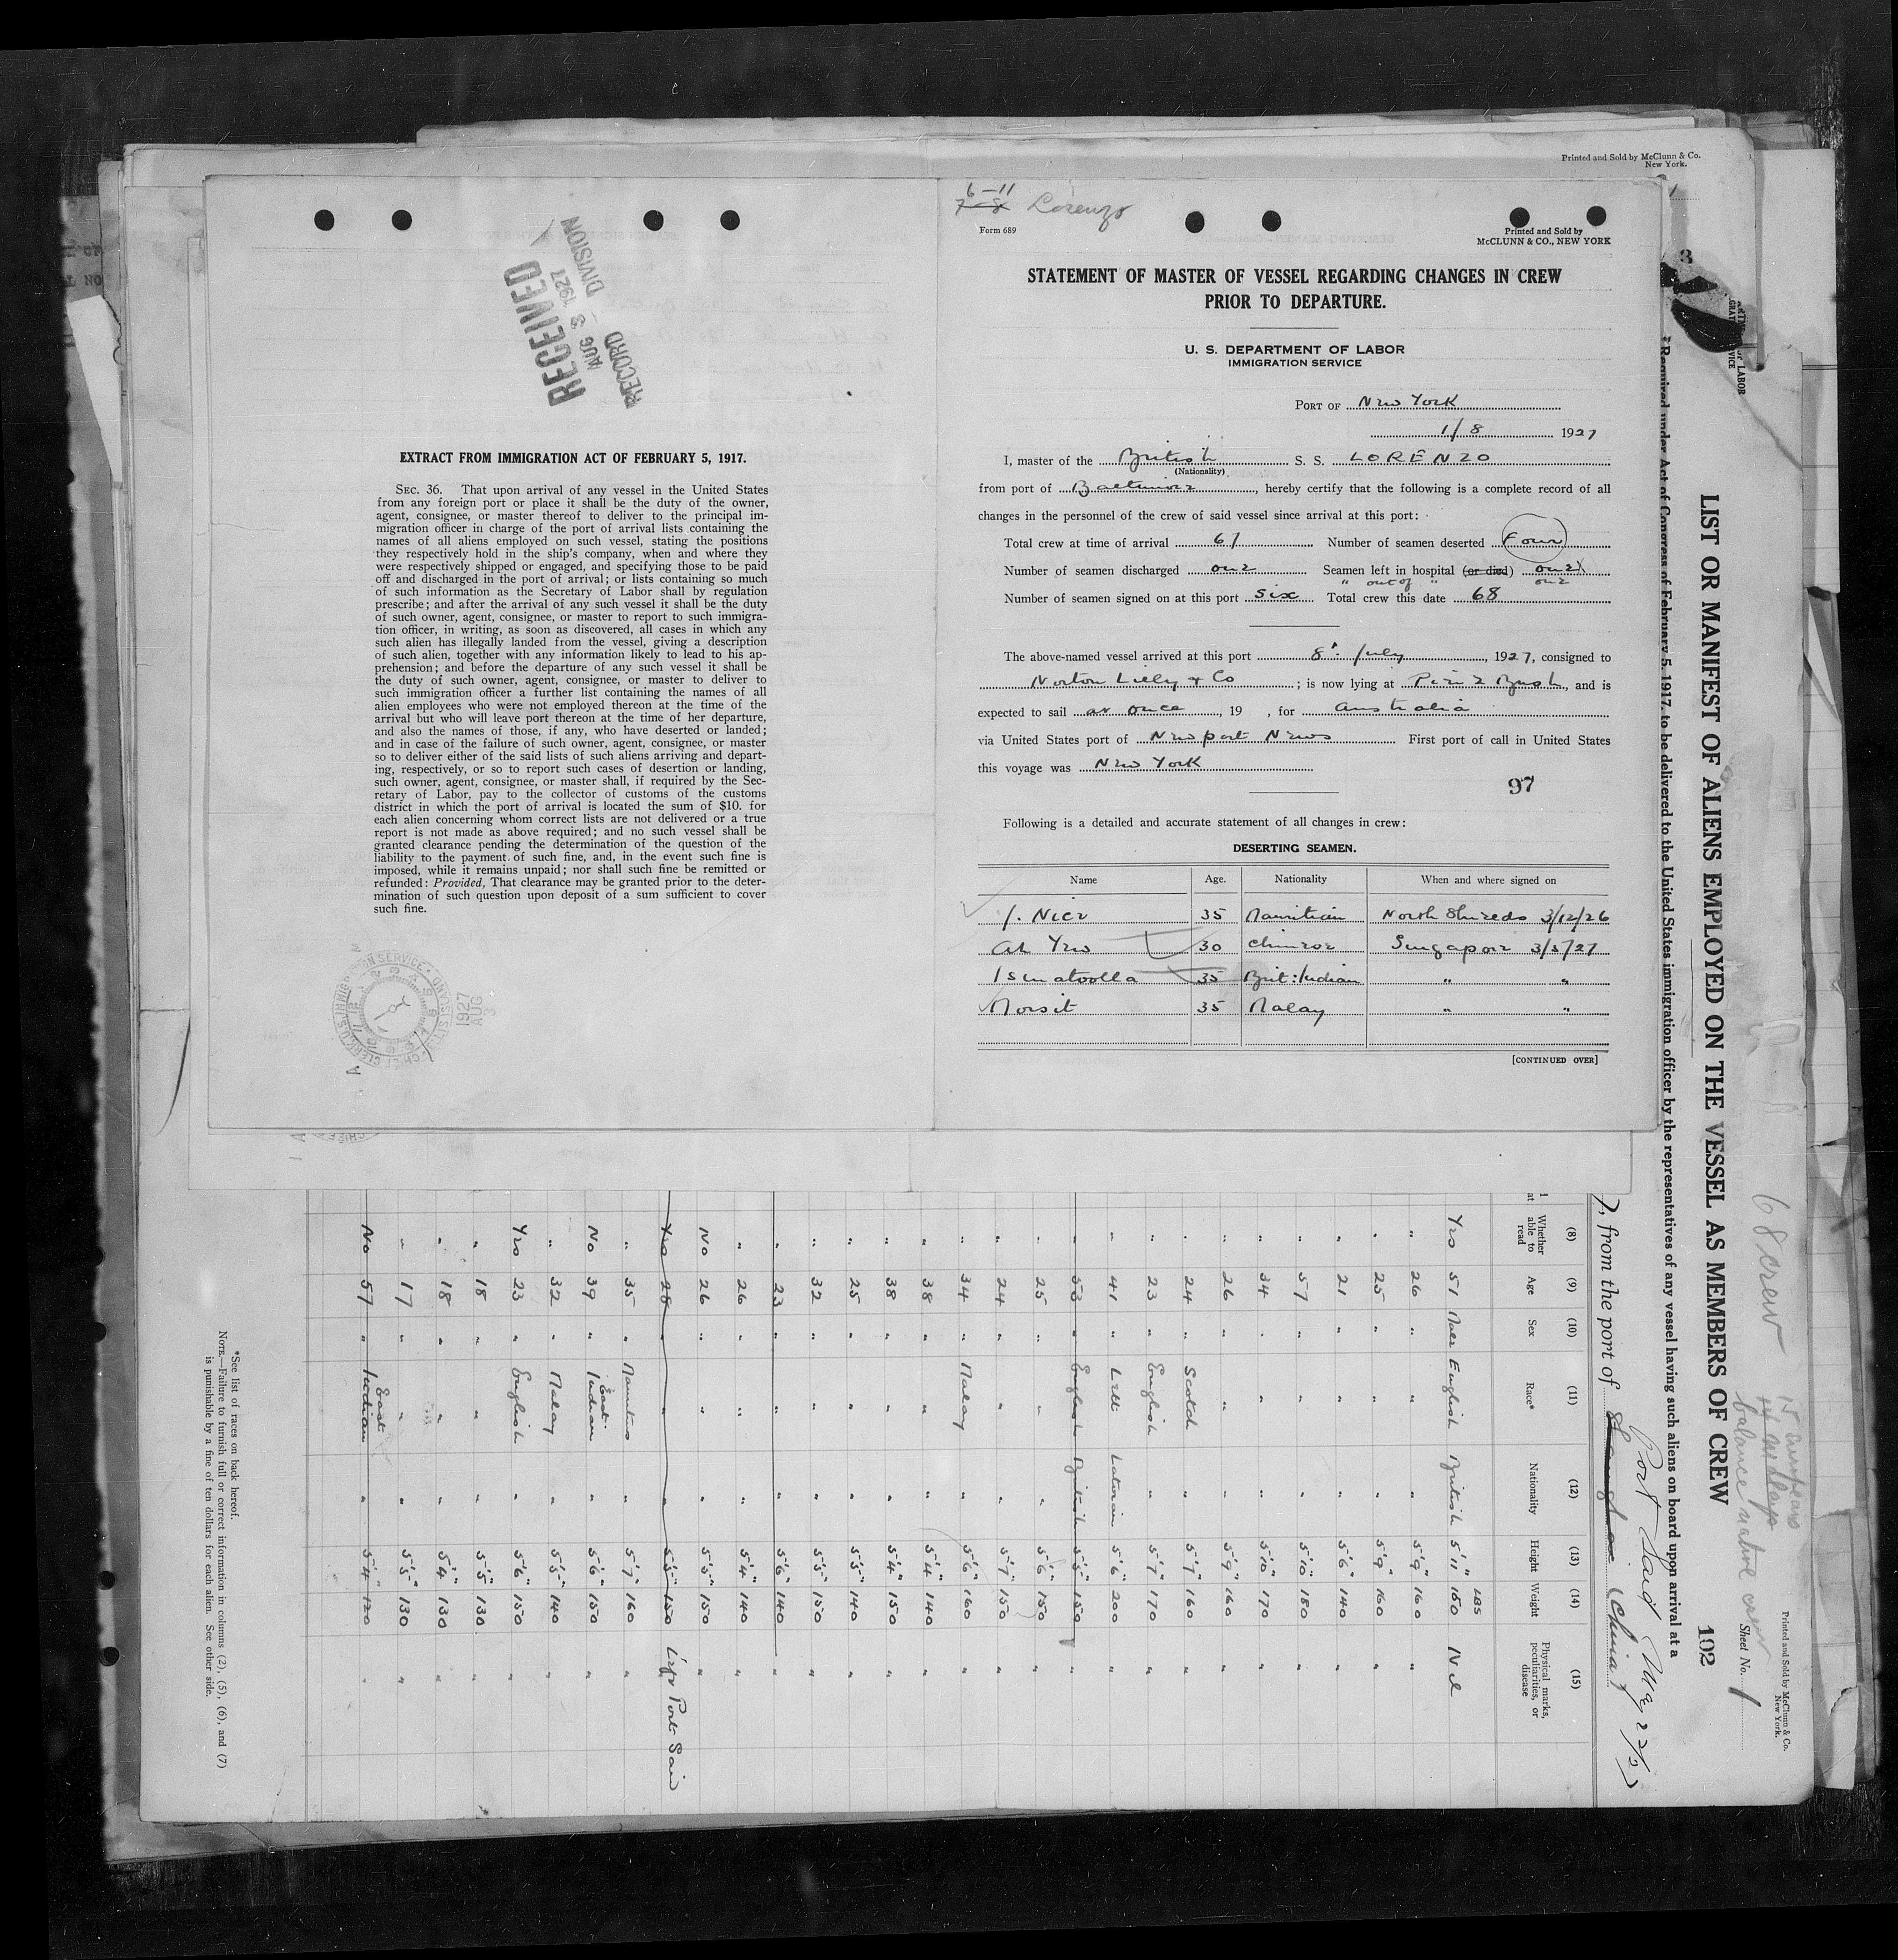 RECEIVED
AUG 3 1927
RECORD DIVISION
EXTRACT FROM IMMIGRATION ACT OF FEBRUARY 5, 1917.
SEC. 36. That upon arrival of any vessel in the United States
from any foreign port or place it shall be the duty of the owner,
agent, consignee, or master thereof to deliver to the principal im-
migration officer in charge of the port of arrival lists containing the
names of all aliens employed on such vessel, stating the positions
they respectively hold in the ship's company, when and where they
were respectively shipped or engaged, and specifying those to be paid
off and discharged in the port of arrival; or lists containing so much
of such information as the Secretary of Labor shall by regulation
prescribe; and after the arrival of any such vessel it shall be the duty
of such owner, agent, consignee, or master to report to such immigra-
tion officer, in writing, as soon as discovered, all cases in which any
such alien has illegally landed from the vessel, giving a description
of such alien, together with any information likely to lead to his ap-
prehension; and before the departure of any such vessel it shall be
the duty of such owner, agent, consignee, or master to deliver to
such immigration officer a further list containing the names of all
alien employees who were not employed thereon at the time of the
arrival but who will leave port thereon at the time of her departure,
and also the names of those, if any, who have deserted or landed;
and in case of the failure of such owner, agent, consignee, or master
so to deliver either of the said lists of such aliens arriving and depart-
ing, respectively, or so to report such cases of desertion or landing,
such owner, agent, consignee, or master shall, if required by the Sec-
retary of Labor, pay to the collector of customs of the customs
district in which the port of arrival is located the sum of $10. for
each alien concerning whom correct lists are not delivered or a true
report is not made as above required; and no such vessel shall be
granted clearance pending the determination of the question of the
liability to the payment of such fine, and, in the event such fine is
imposed, while it remains unpaid; nor shall such fine be remitted or
refunded: Provided, That clearance may be granted prior to the deter-
mination of such question upon deposit of a sum sufficient to cover
such fine.
1927 AUG 3
6-11
7-8 Lorenzo
Form 689
Printed and Sold by
McCLUNN & CO., NEW YORK
STATEMENT OF MASTER OF VESSEL REGARDING CHANGES IN CREW
PRIOR TO DEPARTURE.
U. S. DEPARTMENT OF LABOR
IMMIGRATION SERVICE
PORT OF New York
1/8 1927
I, master of the British S. S. LORENZO
(Nationality)
from port of Baltimore, hereby certify that the following is a complete record of all
changes in the personnel of the crew of said vessel since arrival at this port:
Total crew at time of arrival 67 Number of seamen deserted Four
Number of seamen discharged one Seamen left in hospital (or died) one
" out of " one
Number of seamen signed on at this port six Total crew this date 68
The above-named vessel arrived at this port 8th July, 1927, consigned to
Norton Lilly & Co; is now lying at Pier 2 Bush, and is
expected to sail at once, 19 , for Australia
via United States port of Newport News First port of call in United States
this voyage was New York
97
Following is a detailed and accurate statement of all changes in crew:
DESERTING SEAMEN.
Name Age. Nationality When and where signed on
J. Nier 35 Mauritian North Shields 3/12/26
Ah Yew 30 Chinese Singapore 3/5/27
Ismatoolla 35 Brit: Indian " "
Morsit 35 Malay " "
[CONTINUED OVER]
Printed and Sold by McClunn & Co.
New York.
Printed and Sold by McClunn & Co.
New York.
Sheet No. 1
68 crew
15 europeans
balance native crew
LIST OR MANIFEST OF ALIENS EMPLOYED ON THE VESSEL AS MEMBERS OF CREW
102
Required under Act of Congress of February 5, 1917, to be delivered to the United States immigration officer by the representatives of any vessel having such aliens on board upon arrival at a
Port Said
, from the port of Shanghae (China)
(8) (9) (10) (11) (12) (13) (14) (15)
Whether able to read Age Sex Race* Nationality Height Weight Physical marks, peculiarities, or disease
LBS
Yes 51 Male English British 5'11" 160 Nil
" 26 " " " 5'9" 160 "
" 25 " " " 5'9" 160 "
" 21 " " " 5'6" 140 "
" 57 " " " 5'10" 180 "
" 34 " " " 5'10" 170 "
" 26 " " " 5'9" 160 "
" 24 " Scotch " 5'7" 160 "
" 23 " English " 5'7" 170 "
" 41 " Lett Latvian 5'6" 200 "
" 53 " English British 5'5" 150 "
" 25 " " " 5'6" 150 "
" 24 " " " 5'7" 150 "
" 34 " Malay " 5'6" 160 "
" 38 " " " 5'4" 140 "
" 38 " " " 5'4" 150 "
" 25 " " " 5'5" 140 "
" 32 " " " 5'5" 150 "
" 23 " " " 5'6" 140 "
" 26 " " " 5'4" 140 "
No 26 " " " 5'5" 150 "
Yes 28 " " " 5'5" 150 Left Port Said
" 35 " Mauritius " 5'7" 160 "
No 39 " East Indian " 5'6" 150 "
" 32 " Malay " 5'5" 140 "
Yes 23 " English " 5'6" 150 "
" 18 " " " 5'5" 130 "
" 18 " " " 5'4" 130 "
" 17 " " " 5'5" 130 "
No 57 " East Indian " 5'4" 120 "
*See list of races on back hereof.
NOTE.—Failure to furnish full or correct information in columns (2), (5), (6), and (7)
is punishable by a fine of ten dollars for each alien. See other side.